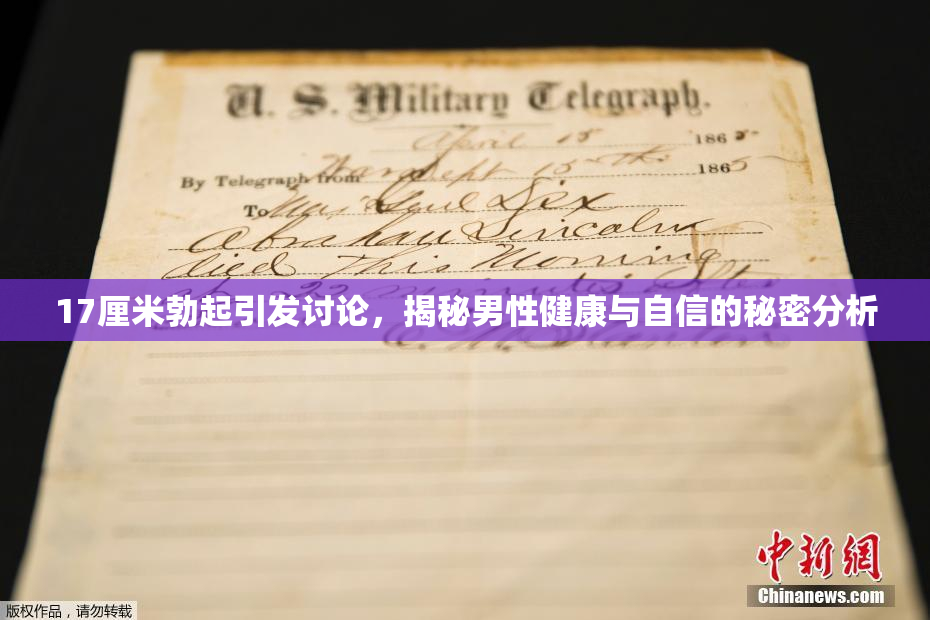 U. S. Military Telegraph.
April 15 1865
By Telegraph from War Dept 15th 1865
To Maj Genl Dix
Abraham Lincoln
died This Morning
17厘米勃起引发讨论，揭秘男性健康与自信的秘密分析
中新网
Chinanews.com
版权作品，请勿转载